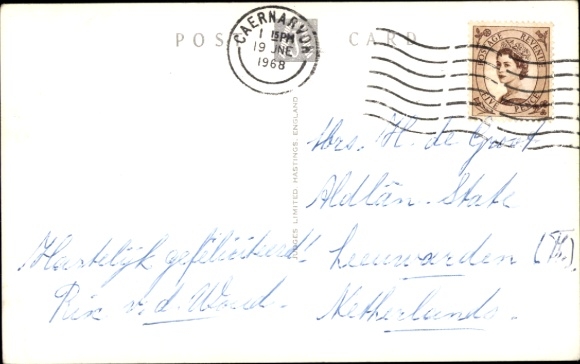 POST CARD
CAERNARVON
1 15PM
19 JNE
1968
POSTAGE REVENUE
FIVE PENCE
JUDGES LIMITED, HASTINGS, ENGLAND
Mrs. H. de Groot
Aldlân-State
Leeuwarden (Fr.)
Netherlands.
Hartelijk gefeliciteerd!
Rix v.d. Woud.